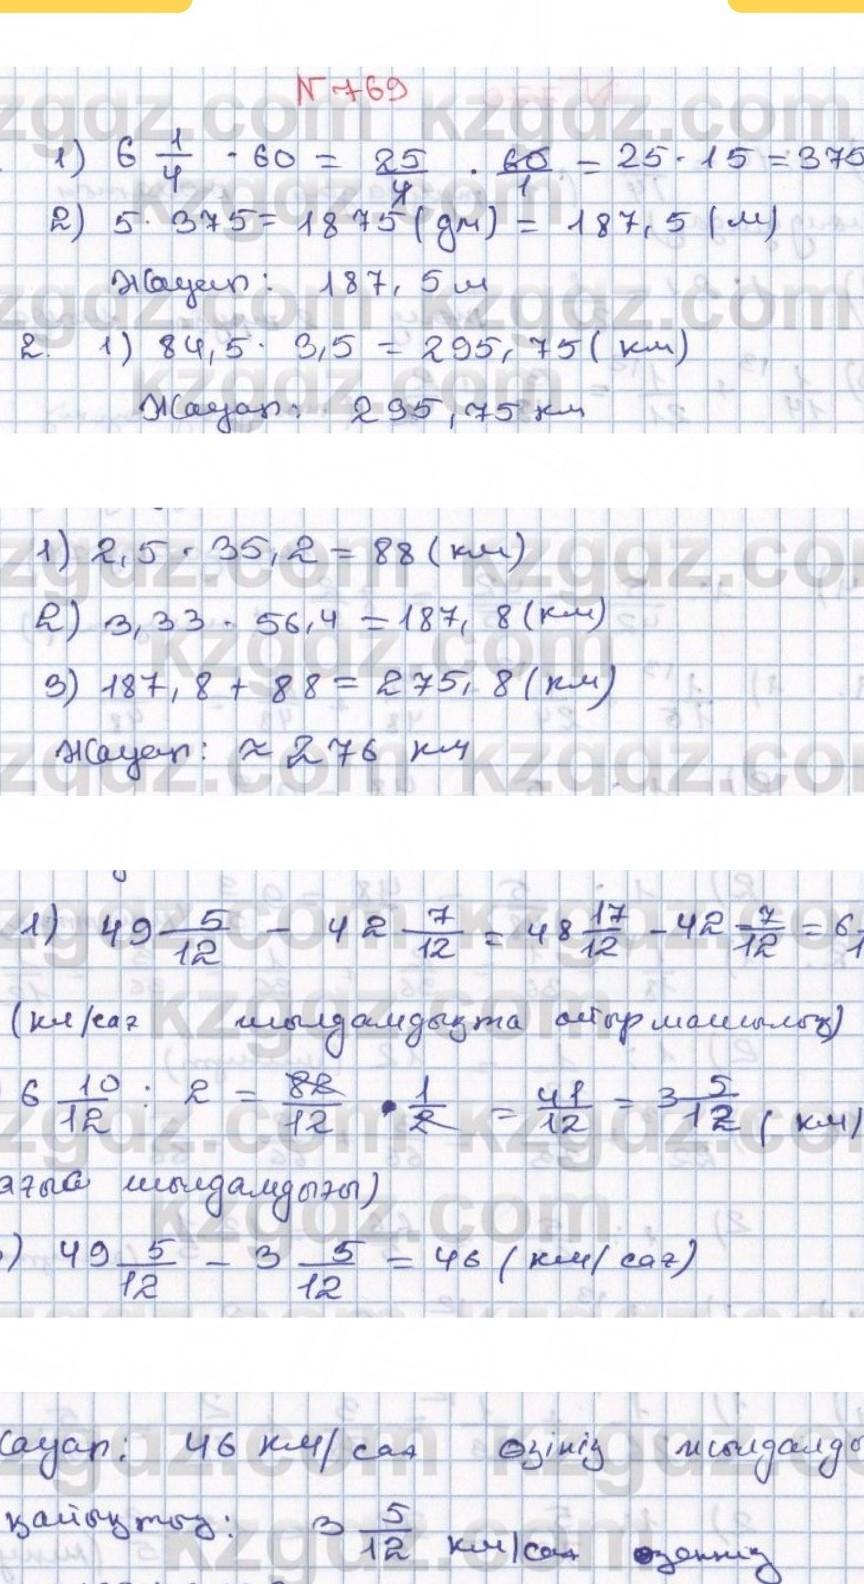 N 769
1) 6 1/4 · 60 = 25/4 · 60/1 = 25 · 15 = 375
2) 5 · 375 = 1875 (дм) = 187,5 (м)
Жауап: 187,5 м
2. 1) 84,5 · 3,5 = 295,75 (км)
Жауап: 295,75 км
1) 2,5 · 35,2 = 88 (км)
2) 3,33 · 56,4 = 187,8 (км)
3) 187,8 + 88 = 275,8 (км)
Жауап: ≈ 276 км
1) 49 5/12 - 42 7/12 = 48 17/12 - 42 7/12 = 6
(км/сағ жылдамдықта айырмашылық)
6 10/12 : 2 = 82/12 · 1/2 = 41/12 = 3 5/12 (км/
жылдамдығы)
) 49 5/12 - 3 5/12 = 46 (км/сағ)
ауап: 46 км/сағ өзінің жылдамды
қайықтың: 3 5/12 км/сағ өзеннің
kzgdz.com